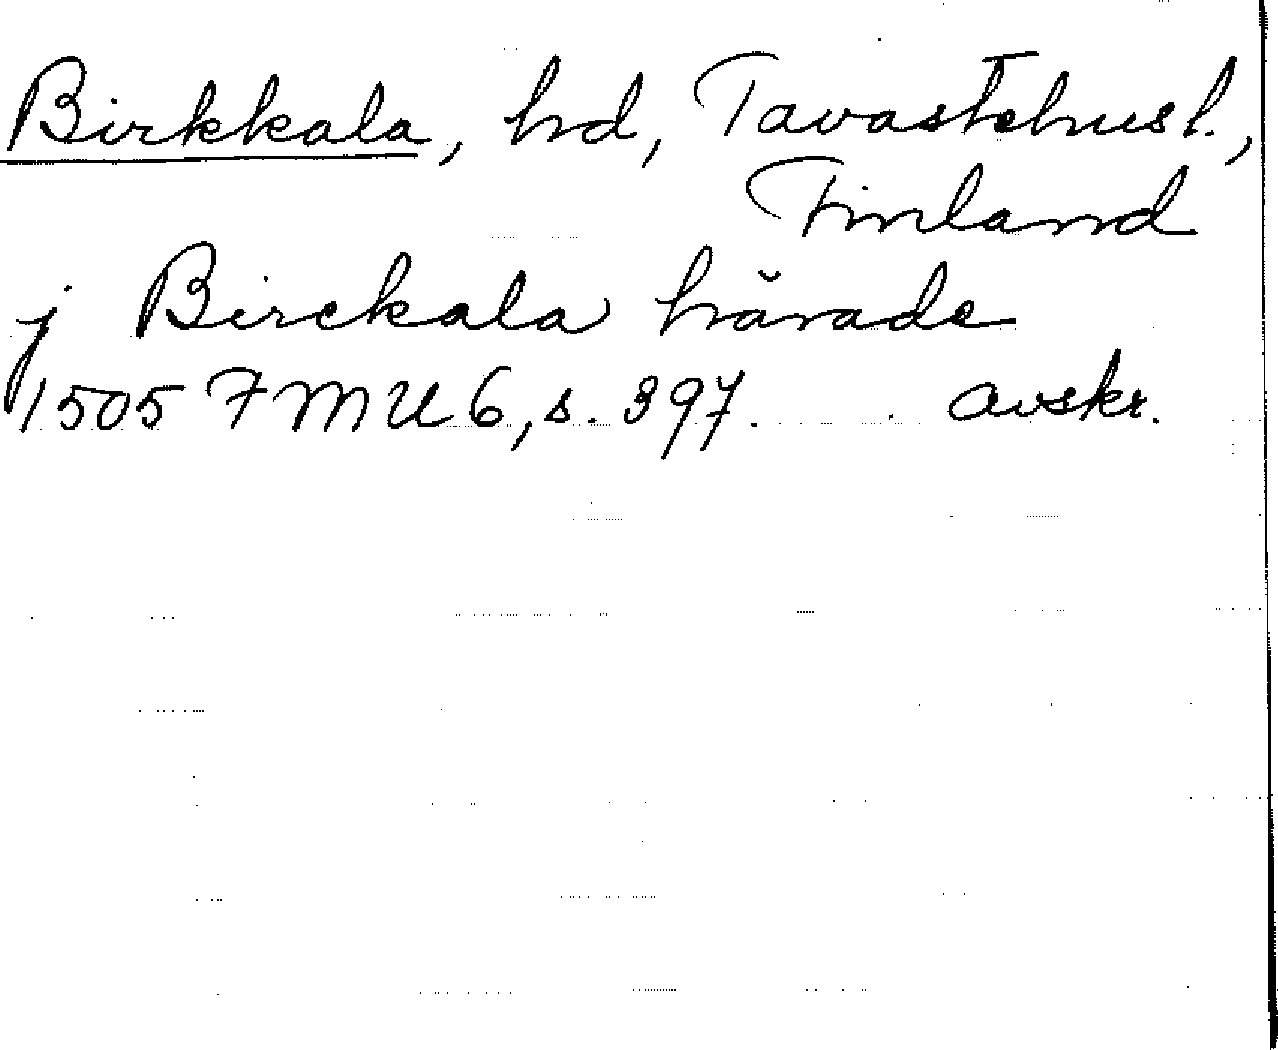 Birkkala, hd, Tavastehus l.,
Finland
j Birckala härade
1505 FMU 6, s. 397. avskr.